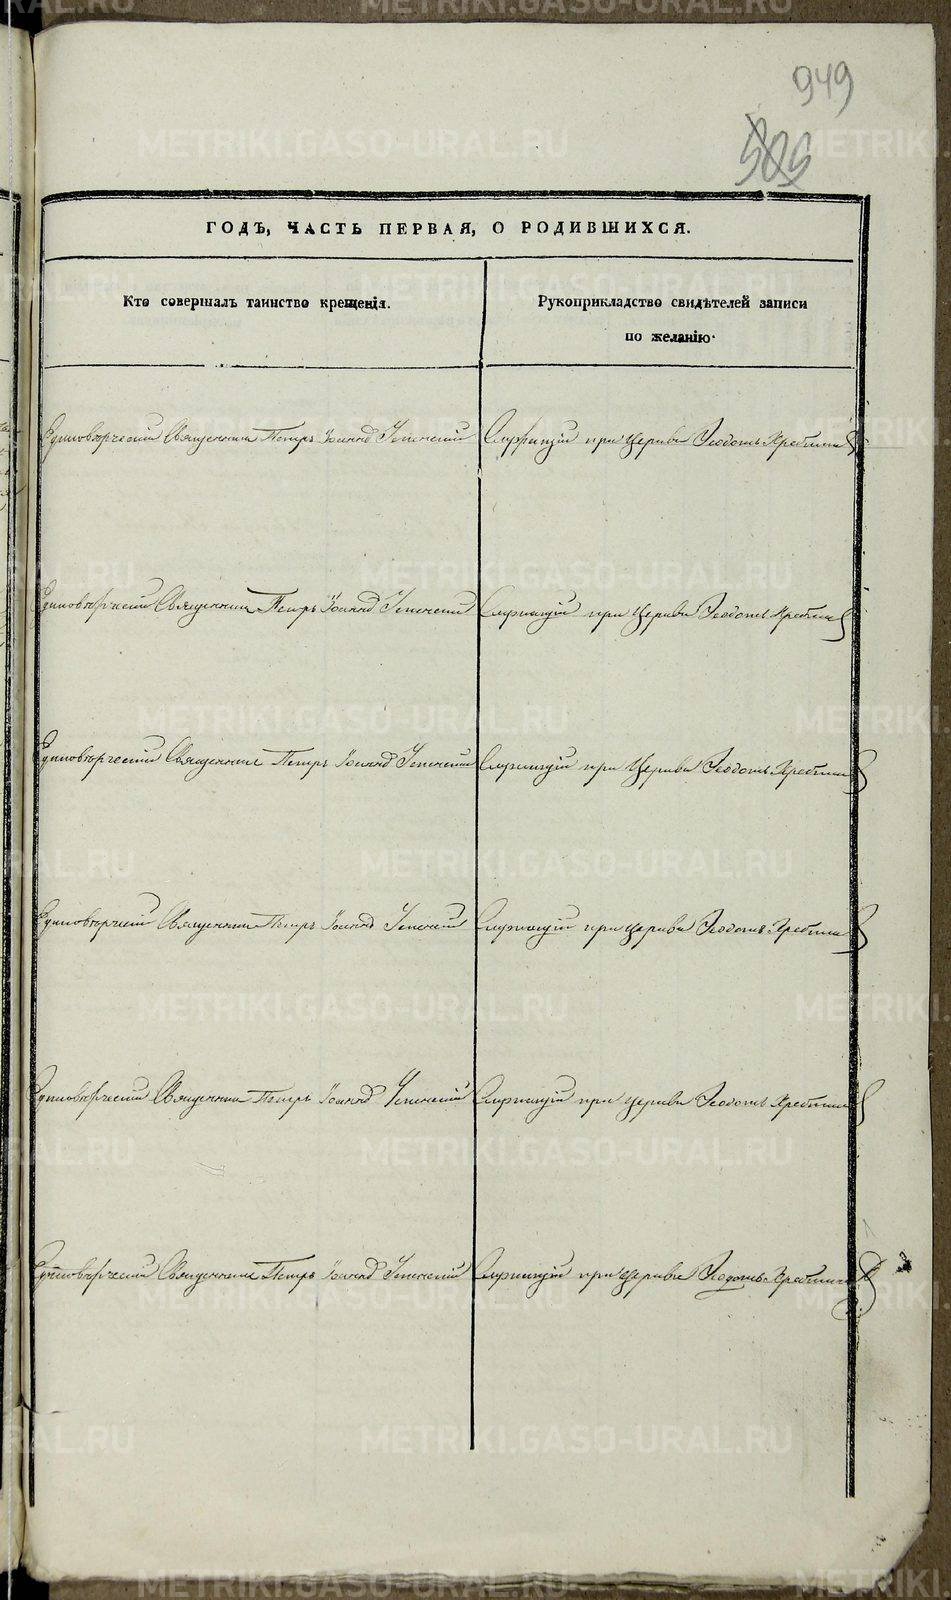 949
505
ГОДЪ, ЧАСТЬ ПЕРВАЯ, О РОДИВШИХСЯ.
Кто совершалъ таинство крещенія.
Рукоприкладство свидѣтелей записи
по желанію.
Единовѣрческій Священникъ Петръ Успенскій
Служащій при Церкви Ѳеодотъ
Единовѣрческій Священникъ Петръ Успенскій
Служащій при Церкви Ѳеодотъ
Единовѣрческій Священникъ Петръ Успенскій
Служащій при Церкви Ѳеодотъ
Единовѣрческій Священникъ Петръ Успенскій
Служащій при церкви Ѳеодотъ
Единовѣрческій Священникъ Петръ Успенскій
Служащій при церкви Ѳеодотъ
Единовѣрческій Священникъ Петръ Успенскій
Служащій при Церкви Ѳеодотъ
METRIKI.GASO-URAL.RU